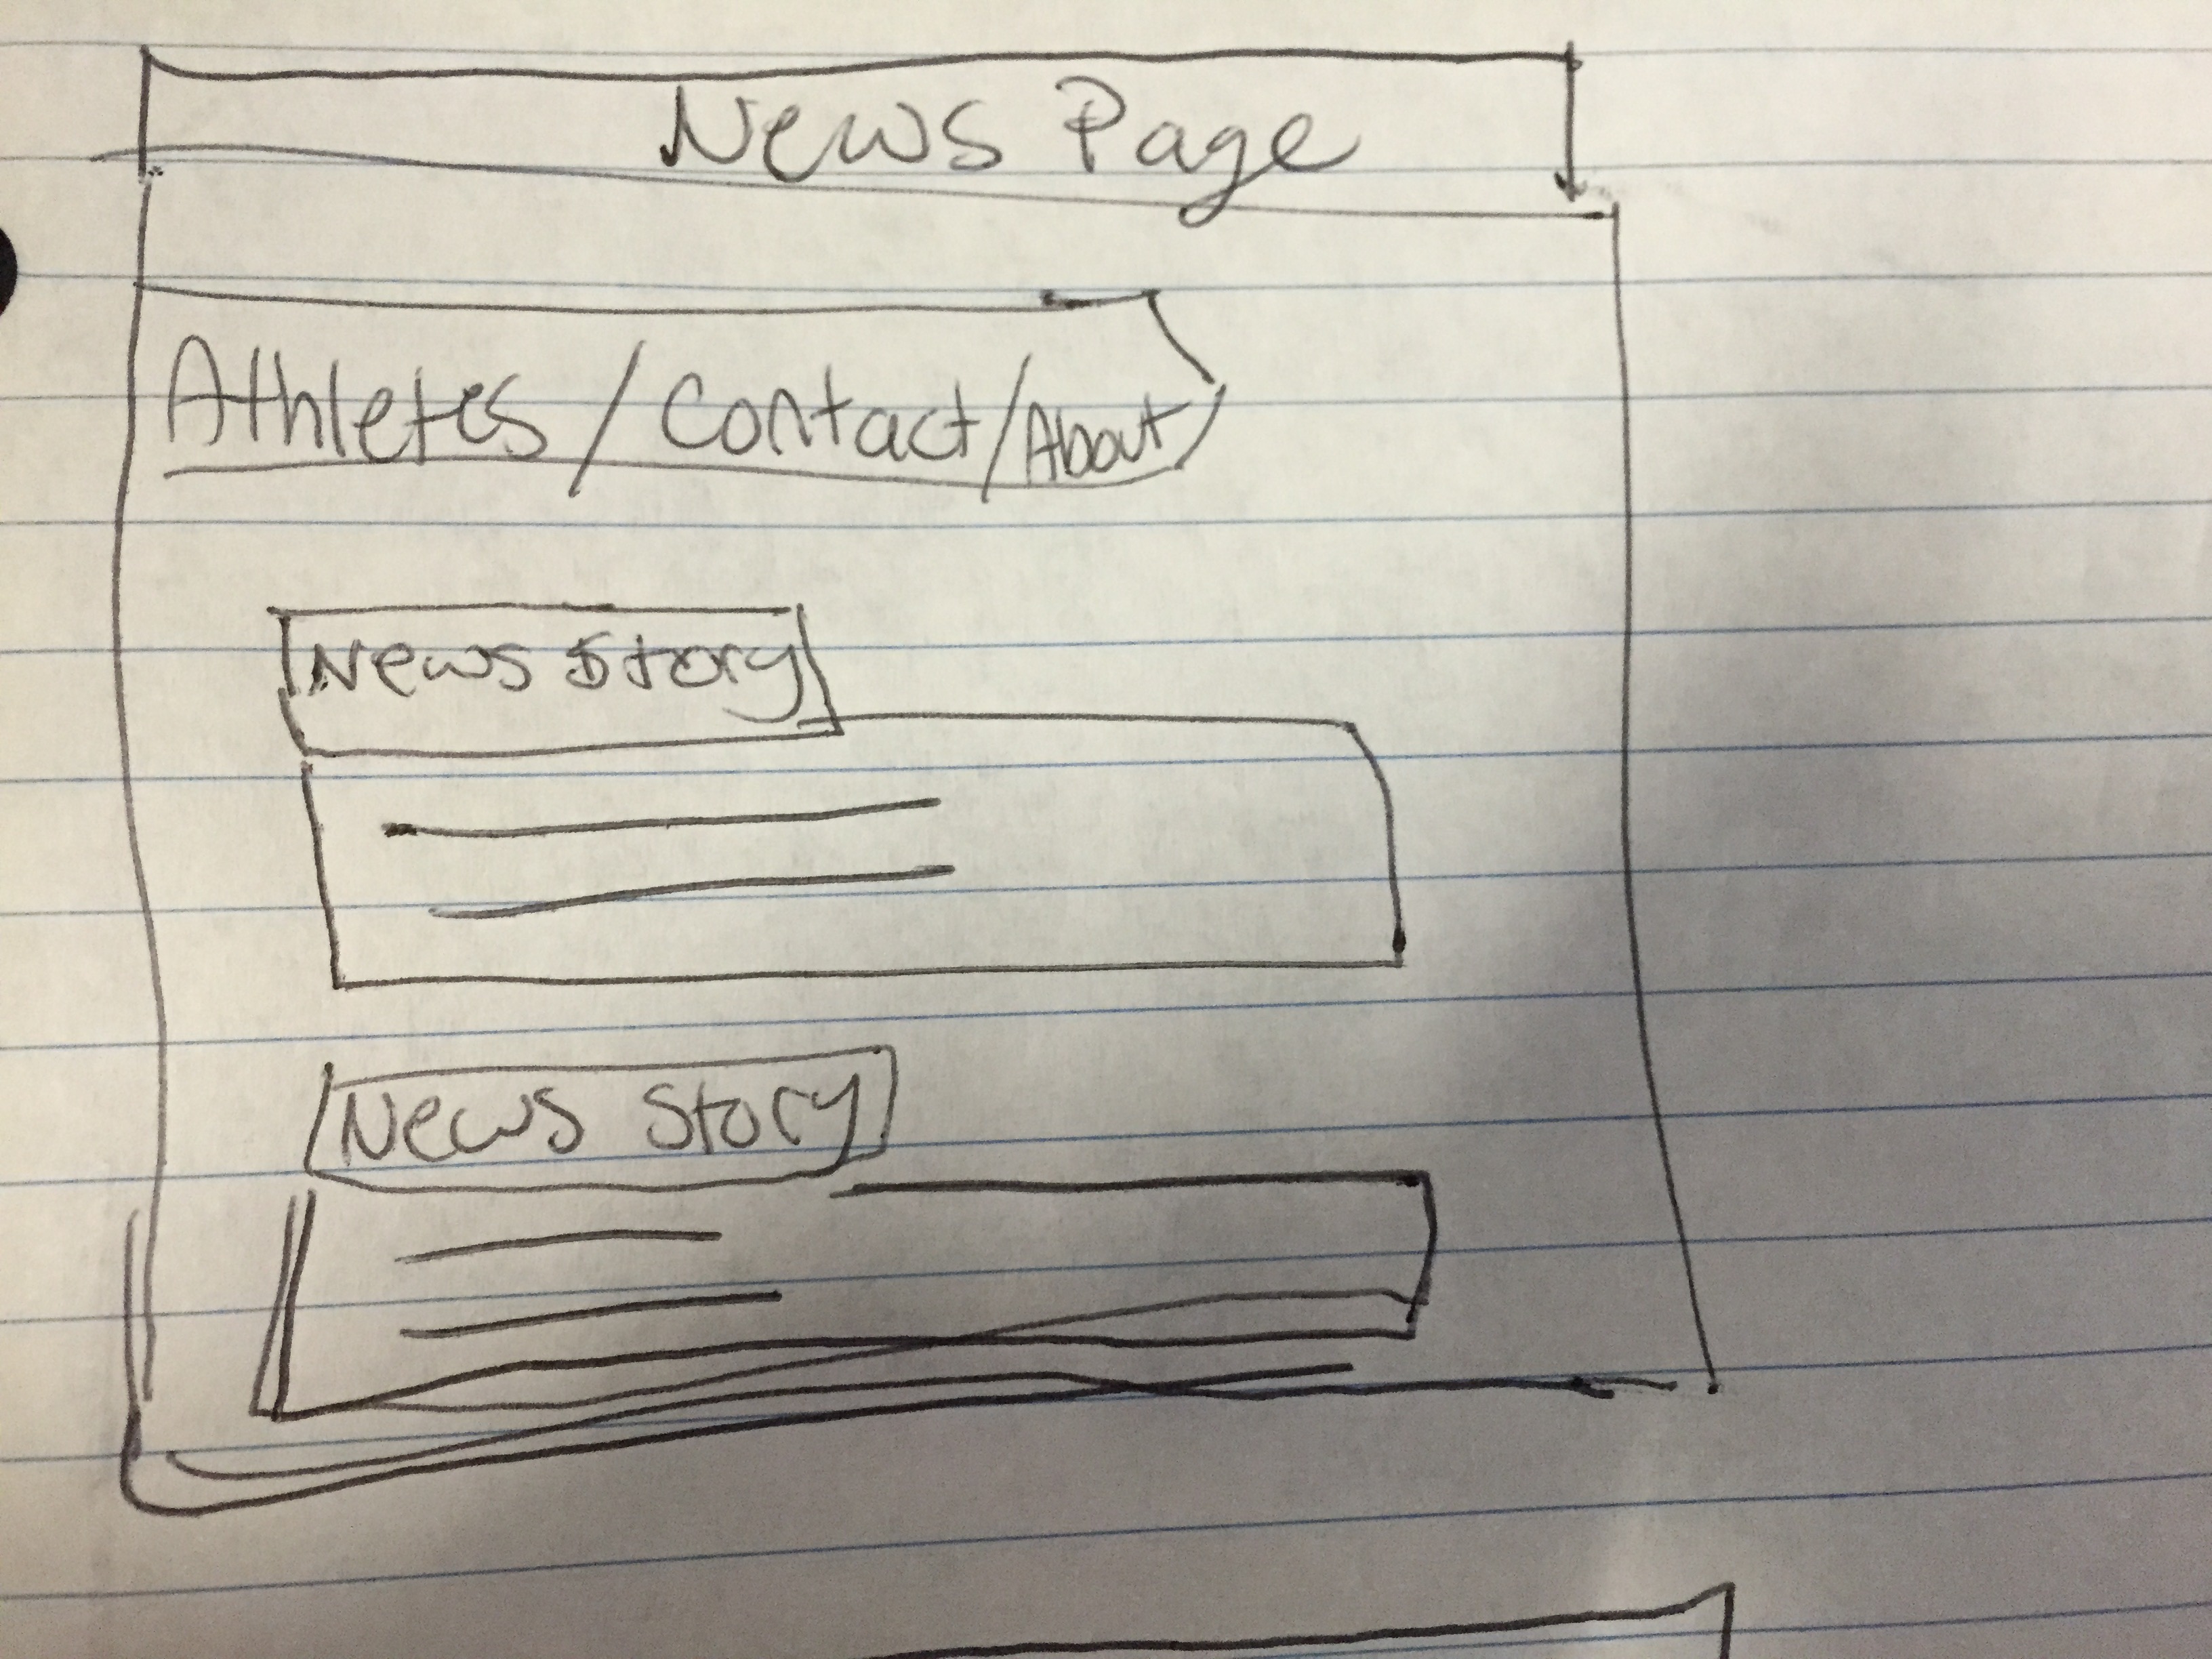 News Page
Athletes / Contact / About
News Story
News Story